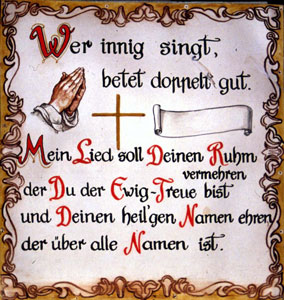 Wer innig singt,
betet doppelt gut.
Mein Lied soll Deinen Ruhm
vermehren
der Du der Ewig-Treue bist
und Deinen heil'gen Namen ehren
der über alle Namen ist.